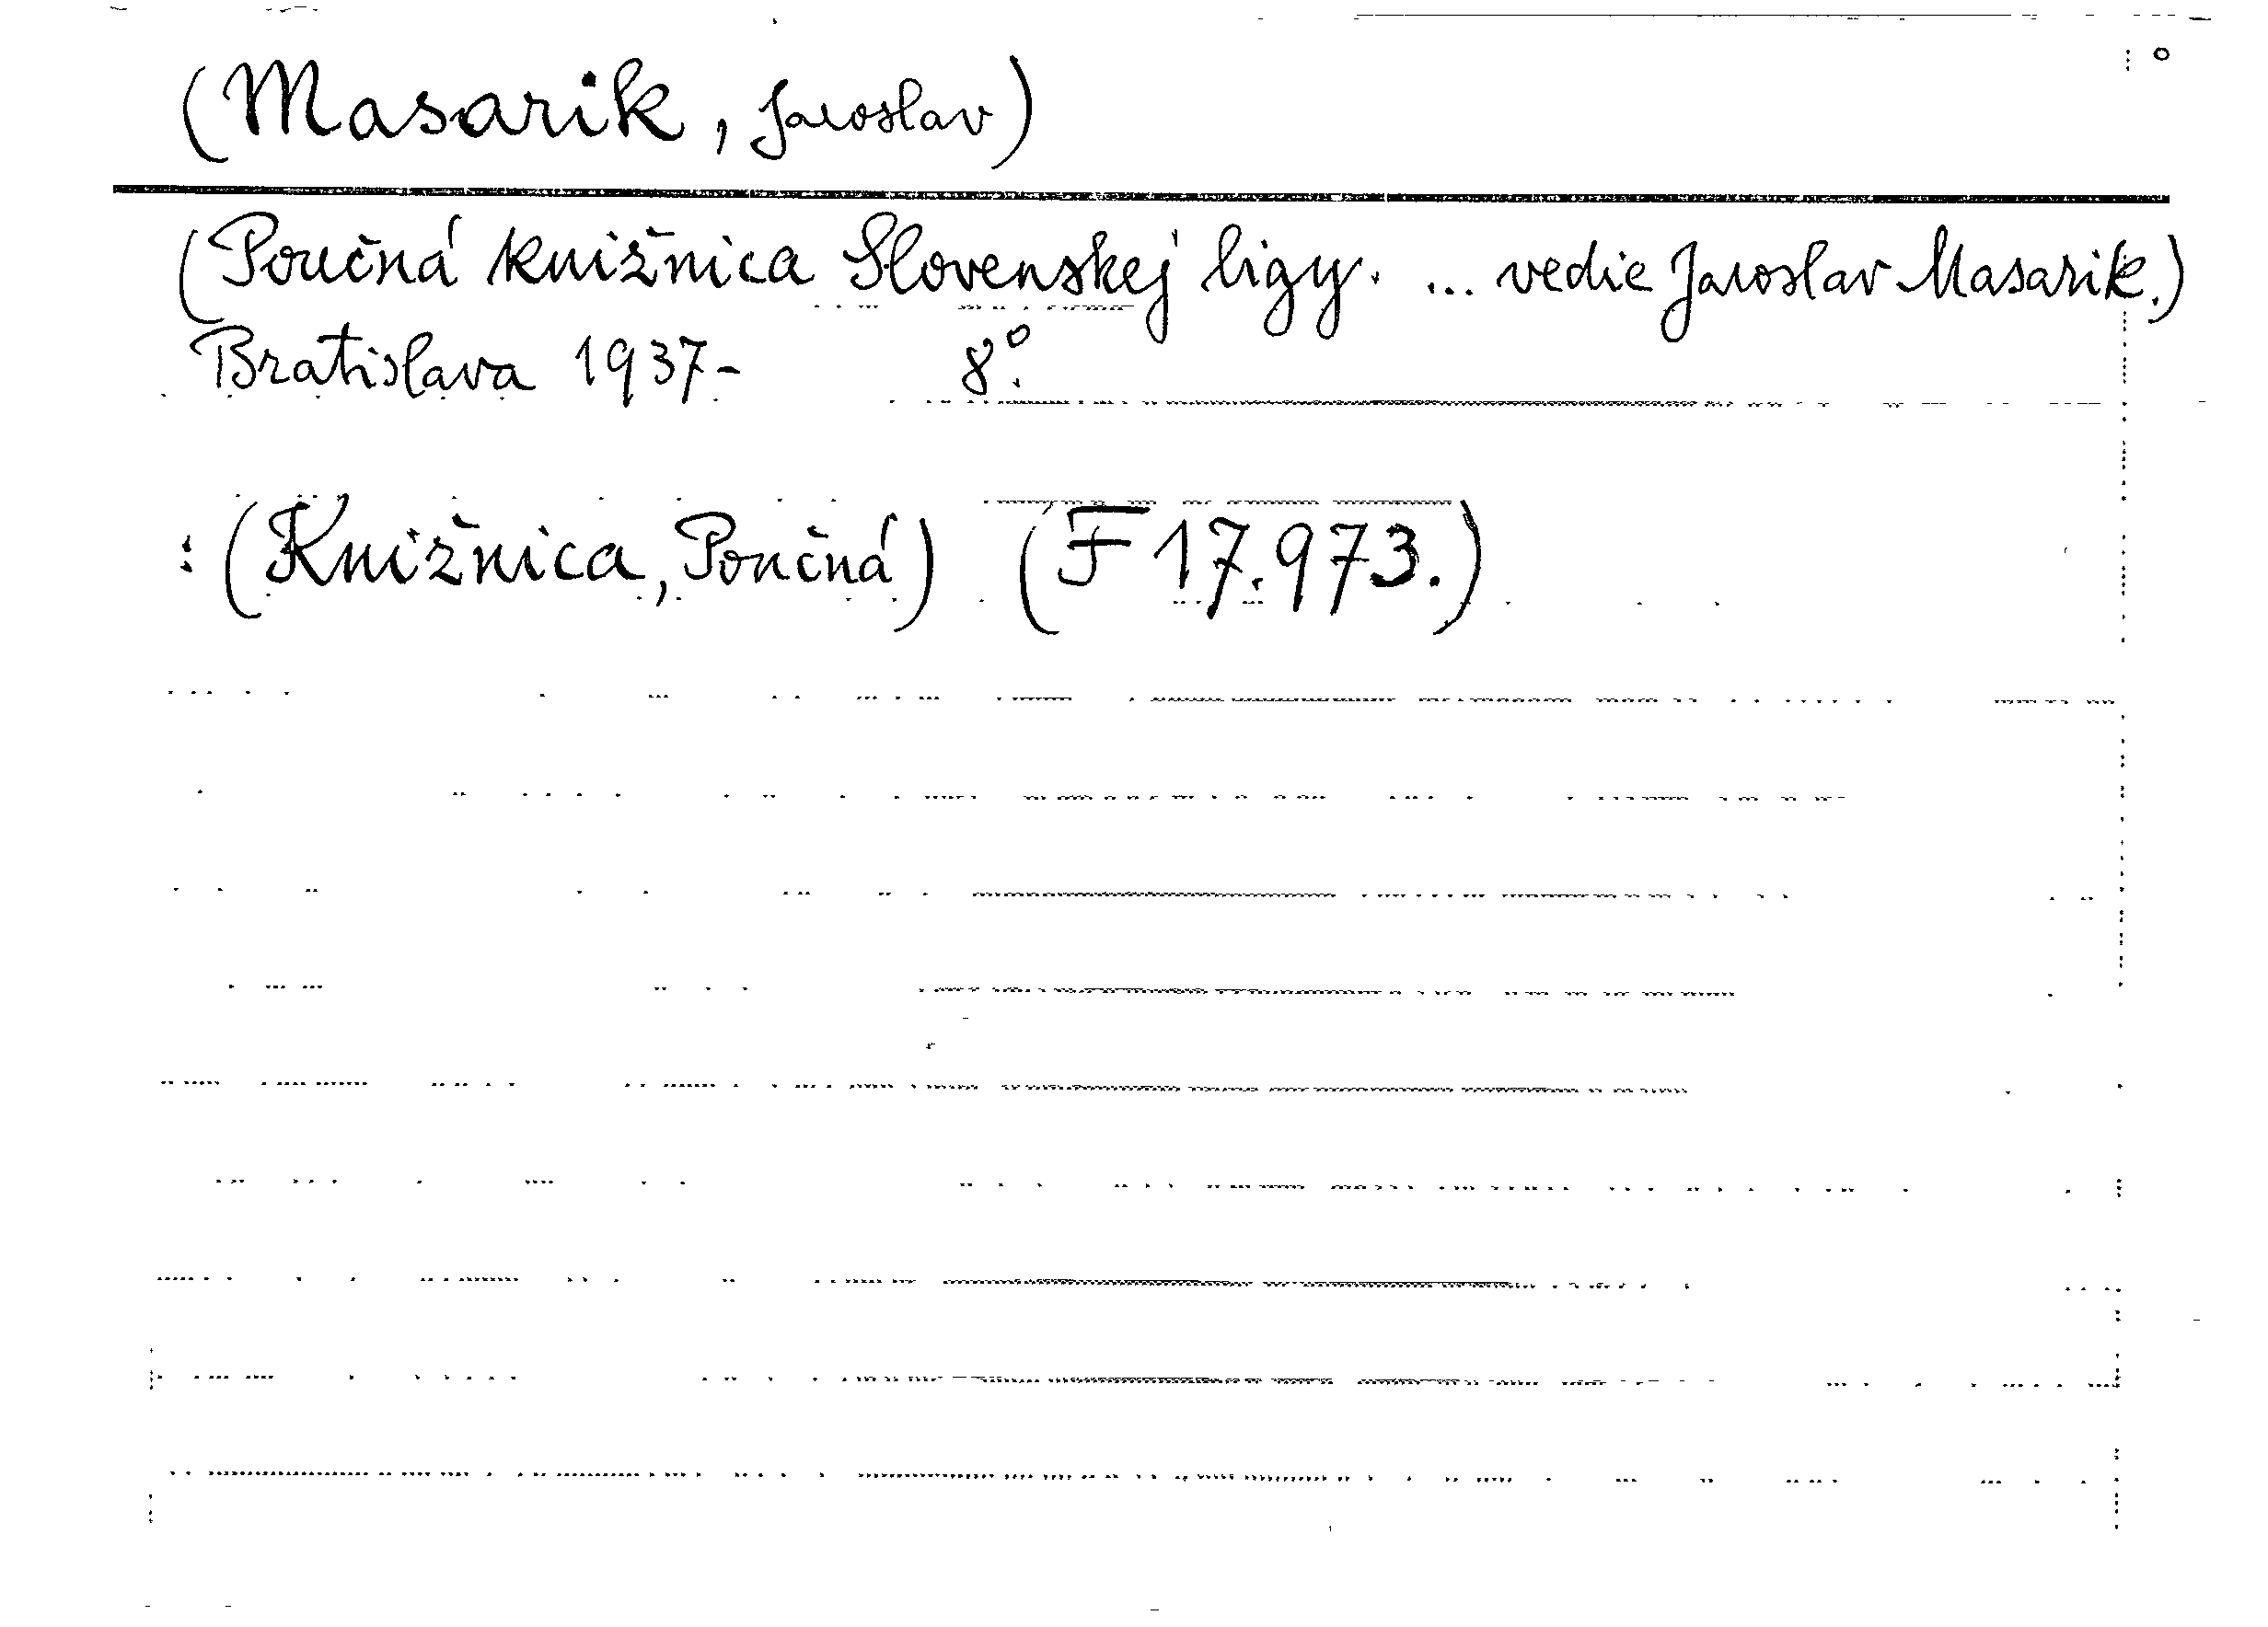 (Masarik, Jaroslav)
(Poučná knižnica Slovenskej ligy. ... vedie Jaroslav Masarik.)
Bratislava 1937- 8°.
: (Knižnica, Poučná) (F 17.973.)